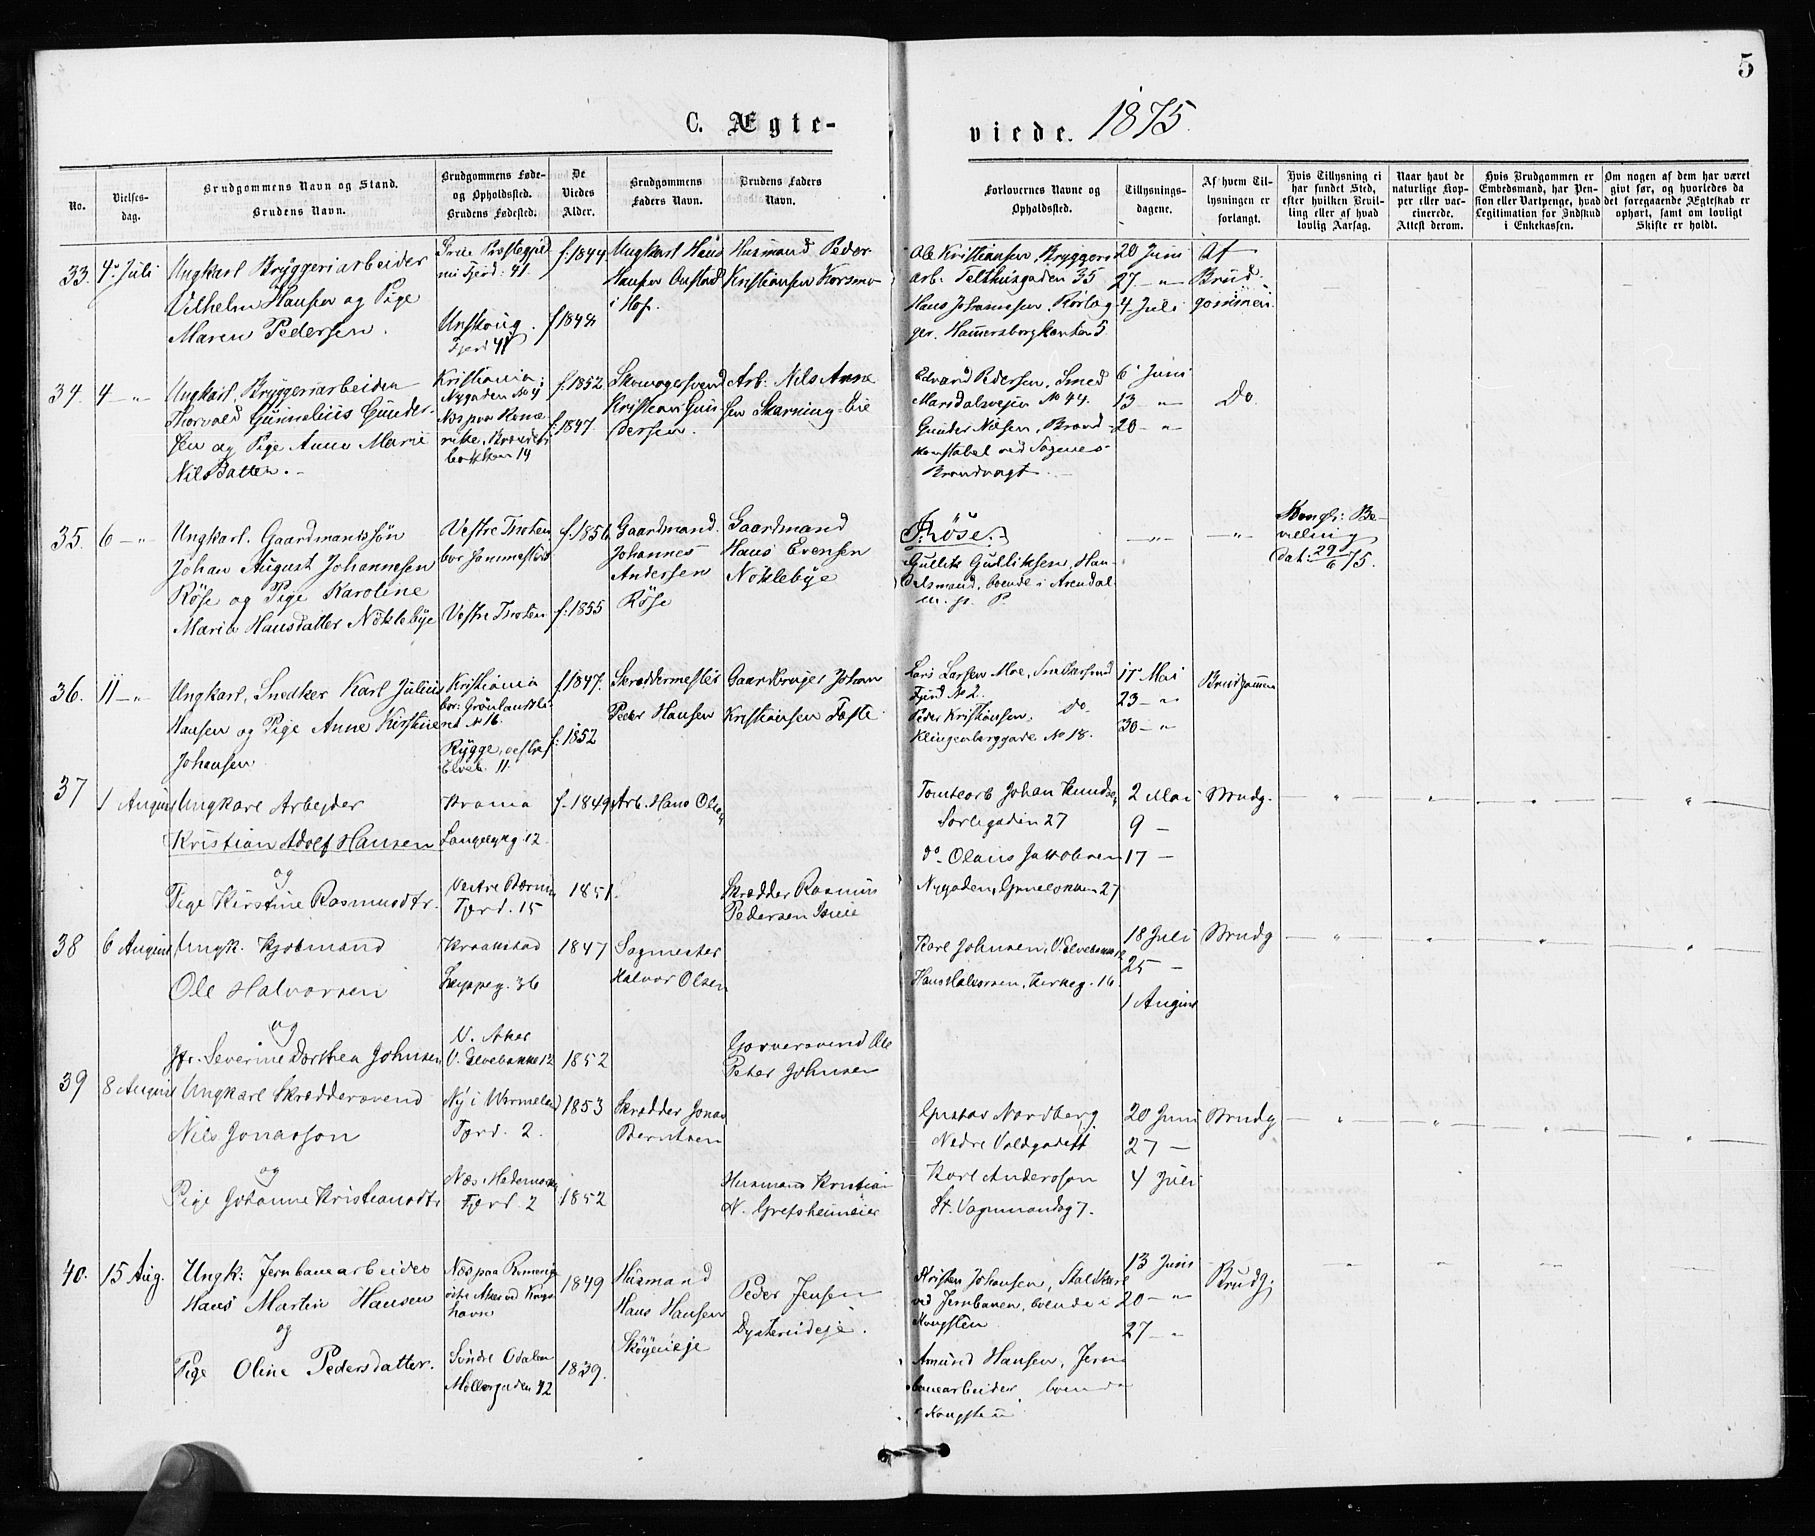 5
C. Ægte-
viede. 1875.
No.
Vielses-
dag.
Brudgommens Navn og Stand.
Brudens Navn.
Brudgommens Føde-
og Opholdssted.
Brudens Fødested.
De
Viedes
Alder.
Brudgommens
Faders Navn.
Brudens Faders
Navn.
Forlovernes Navne og
Opholdssted.
Tillysnings-
dagene.
Af hvem Til-
lysningen er
forlangt.
Hvis Tillysning ei
har fundet Sted,
efter hvilken Bevil-
ling eller af hvad
lovlig Aarsag.
Naar havt de
naturlige Kop-
per eller vac-
cinerede.
Attest derom.
Hvis Brudgommen er
Embedsmand, har Pen-
sion eller Vartpenge, hvad
Legitimation for Indskud
i Enkekassen.
Om nogen af dem har været
gift før, og hvorledes da
det foregaaende Ægteskab er
ophørt, samt om lovligt
Skifte er holdt.
33. 4 Juli
Ungkarl Bryggeriarbeider
Vilhelm Hansen og Pige
Maren Pedersen.
Grue Præstegjeld
Fjerd: 41
Fjerd 41
f. 1844
f. 1848
Ungkarl Hans
Hansen
i Hof.
Husmand Peder
Kristiansen Korsmo
Ole Kristiansen, Bryggeri
arb. Telthusgaden 35
Hans Johannesen, Rørlæg
ger. Hamersborgkanten 5.
20 Juni
27 - "
4 Juli
Af
Brud-
gommen
34. 4 - "
Ungkarl. Bryggeriarbeider
Thorvald Gunnelius Gunder-
sen og Pige Anne Marie
Nilsdatter.
Kristiania.
Nygaden No 4
Næs paa Rome
rike.
14
f. 1852.
f. 1847.
Skomagersvend
Kristian Gun
dersen.
Arb. Nils Arne
sen Skarning-Eie
Edvard Pedersen. Smed
Maridalsvejen No 44.
Gunder Nilsen, Brand-
konstabel ved Sagenes
Brandvagt.
6 Juni
13 "
20 - "
Do.
35. 6 - "
Ungkarl. Gaardmandssøn
Johan August Johannesen
Røse og Pige Karoline
Marie Hansdatter Nøklebye
Vestre Thoten
bor sammesteds
Vestre Thoten
f. 1856
f. 1855
Gaardmand.
Johannes
Andersen
Røse
Gaardmand
Hans Evensen
Nøklebye
J. Røse.
Gullik Gulliksen, Han
delsmand, boende i Arendal
m. p. P.
- " -
- " -
Kongl: Be-
villing
dat. 29/6 75.
36. 11 - "
Ungkarl, Snedker Karl Julius
Hansen og Pige Anne Kirstine
Johansen.
Kristiania
bor: Grønlandsle
ret No 16.
Rygge, vestre
Elveb. 11
f. 1847.
f: 1852
Skræddermester
Peder Hansen
Gaardbruger Johan
Kristiansen Tofte
Lars Larsen Moe, Snedkersvend
Fjerd No 2.
Peder Kristiansen, do.
Klingenberggade No 18.
17 Mai
23 - "
30 - "
Brudgommen
37
1 August
Ungkarl Arbejder
Kristian Adolf Hansen
og
Pige Kirstine Rasmusdtr.
Krania
Langelyng. 12
Vestre Bærum
Fjerd. 15
f. 1849
1851.
Arb. Hans Olsen
Skrædder Rasmus
Pedersen
Tomtearb Johan Knudsen
Sorligaden 27
do Olaus Jakobsen
Nygaden, Grünelokken 27
2 Mai
9 -
17 -
Brudg.
38
6 August
Ungk. Kjøbmand
Ole Halvorsen
og
Jfr. Severine Dorthea Johnsen
Kraakstad
Skippeg. 36
V. Aker
V. Elvebakke 12
1847
1852
Sagmester
Halvor Olsen
Garversvend Ole
Peter Johnsen
Karl Johnsen, V. Elvebakke 12
Hans Halvorsen, Kirkeg. 16
18 Juli
25 -
1 August
Brudg
39
8 August
Ungkarl Skræddersvend
Nils Jonasson
og
Pige Johanne Kristiansdtr
Ny i Wermeland
Fjerd. 2.
Næs Hedemarken
Fjerd. 2
1853
1852
Skrædder Jonas
Berntsen
Husmand Kristian
N. Grefsheimeier
Gustav Nordberg
Nedre Voldgade
Karl Andersson
St. Vognmandsg 7.
20 Juni
27 -
4 Juli
Brudg
40.
15 Aug.
Ungk: Jernbanearbeider
Hans Martin Hansen
og
Pige Oline Pedersdatter.
Næs paa Romerige
østre Aker ved Kongs
havn
Søndre Odalen
Møllergaden 42
1849
1839.
Husmand
Hans Hansen
Skøyeneje
Peder Jensen
Dysterudeje.
Kristen Johansen, Staldkarl
ved Jernbanen, boende i
Kongsten
Amund Hansen, Jern
banearbeider, boende
i Kongsten
13 Juni
20 - "
27 - "
Brudg.